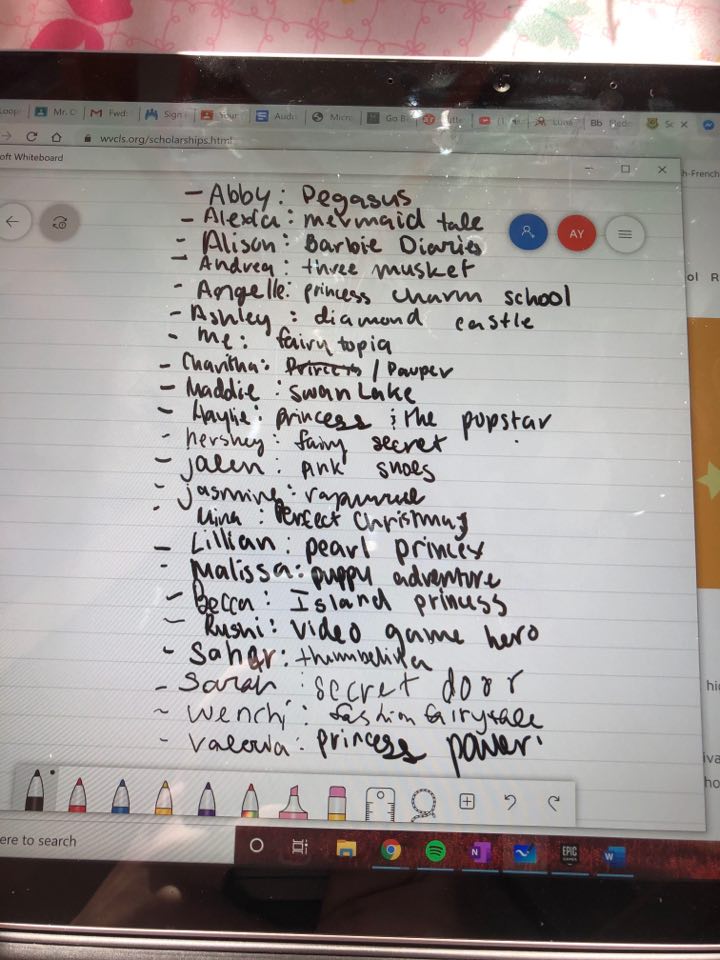 Loop
Mr. C
Fwd:
Sign
Your
Audi
Micro
Go B
(1)
Luna
Bb
Sc
wvcls.org/scholarships.html
oft Whiteboard
h-French
AY
ol R
- Abby: Pegasus
- Alexa: mermaid tale
- Alison: Barbie Diaries
- Andrea: three musket
- Angelle: princess charm school
- Ashley: diamond castle
- me: fairytopia
- Charitha: Princess / Pauper
- Maddie: swan Lake
- Haylie: princess & the popstar
- hershey: fairy secret
- jalen: pink shoes
- jasmine: rapunzel
- Mina: Perfect Christmas
- Lillian: pearl princess
- Malissa: puppy adventure
- Becca: Island princess
- Rushi: video game hero
- Sahar: thumbelina
- Sarah: secret door
- Wenchi: fashion fairytale
- Valeria: princess power
ere to search
EPIC
GAMES
N
W